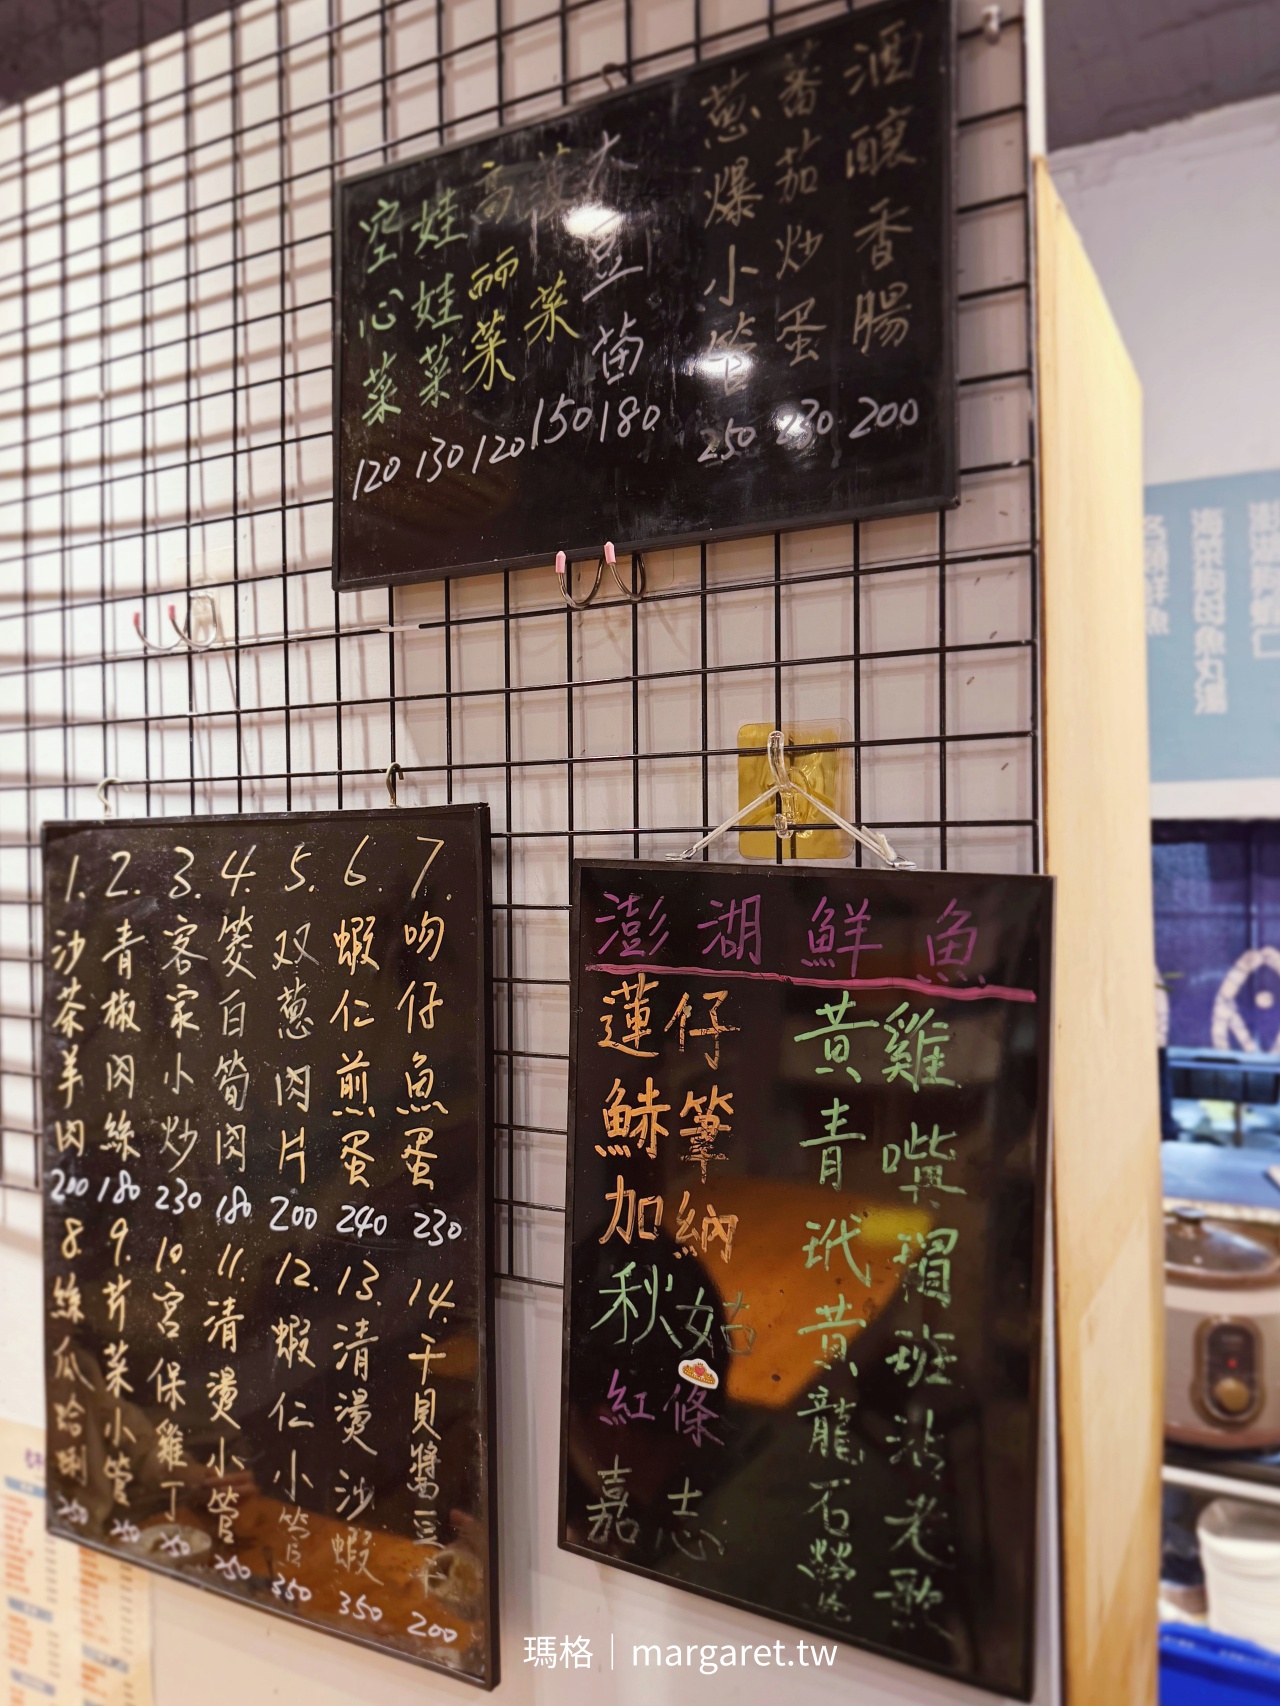 空心菜 120
娃娃菜 130
高麗菜 120
菠菜 150
大豆苗 180
蔥爆小管 250
蕃茄炒蛋 230
酒釀香腸 200
1. 沙茶羊肉 200
2. 青椒肉絲 180
3. 客家小炒 230
4. 筊白筍肉 180
5. 双蔥肉片 200
6. 蝦仁煎蛋 240
7. 吻仔魚蛋 230
8. 絲瓜蛤蜊 250
9. 芹菜小管 250
10. 宮保雞丁 250
11. 清燙小管 250
12. 蝦仁小管 350
13. 清燙沙蝦 350
14. 干貝醬豆干 200
澎湖鮮魚
蓮仔
筆
加納
秋姑
紅條
嘉志
黃雞
青嘴
玳瑁
黃班
龍
石老
瑪格｜margaret.tw